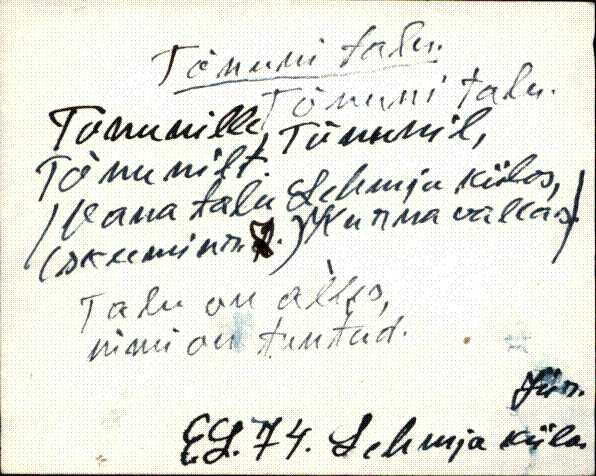 Tõnuni talu.
Tõnuni talu.
Tõnunille, Tõnunil,
Tõnunilt.
/Vana talu Lehmja külas,
Kurna vallas./
Talu on alles,
nimi on tuntud.
Jür.
EL. 74. Lehmja küla.